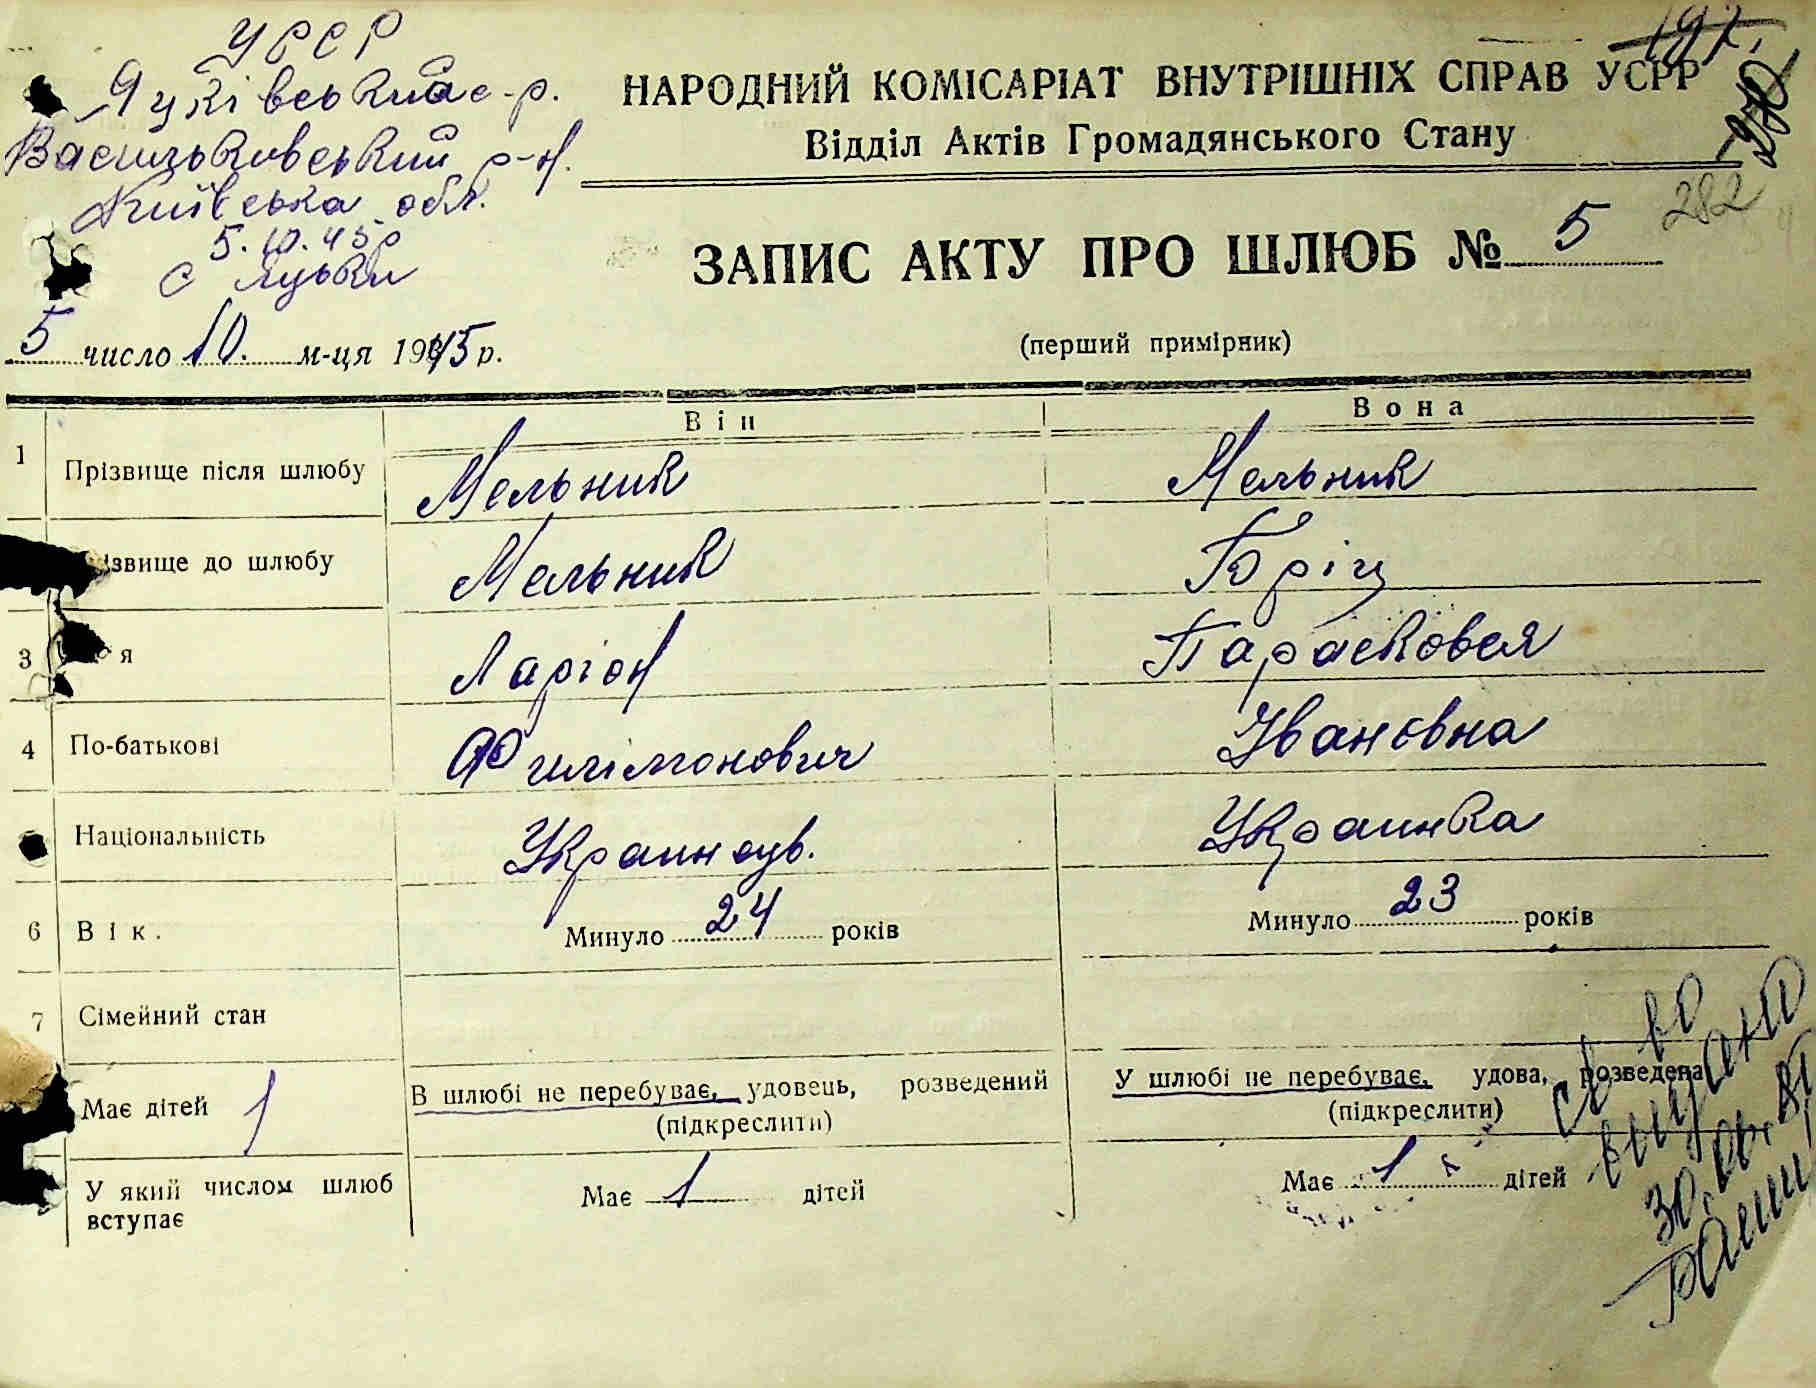 УРСР
Яцківська с-р.
Васильковський р-н.
Київська обл.
5.10.45р
с Яцьки
5 число 10. м-ця 1945 р.
197.
НАРОДНИЙ КОМІСАРІАТ ВНУТРІШНІХ СПРАВ УСРР
Відділ Актів Громадянського Стану
282
ЗАПИС АКТУ ПРО ШЛЮБ № 5
(перший примірник)
Він Вона
1 Прізвище після шлюбу Мельник Мельник
ізвище до шлюбу Мельник Бріц
3 я Ларіон Парасковея
4 По-батькові Филімонович Ивановна
Національність Украинець. Украинка
6 Вік. Минуло 24 років Минуло 23 років
7 Сімейний стан
Має дітей 1 В шлюбі не перебуває, удовець, розведений У шлюбі не перебуває, удова, розведена
(підкреслити) (підкреслити)
У який числом шлюб Має 1 дітей Має 1 дітей
вступає
св во
выдано
30.06.81